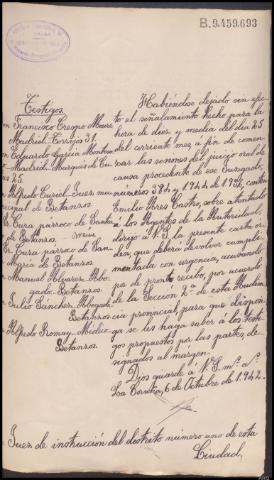 B.9.459.693
Testigos
Francisco Crespo
Madrid. Torrijos 31.
Eduardo García Montero
Madrid. Marqués de
25.
Alfredo Curiel. Juez mu
nicipal de Betanzos.
Sr. Cura parroco de Santia
de Betanzos.
Sr. Cura parroco de San
María de Betanzos
Manuel Alvarez. Abo
gado. Betanzos
Julio Sánchez. Abogado
Betanzos
Alfredo Romay. Médico
Betanzos.
Habiéndose dejado sin efec
to el señalamiento hecho para la
hora de diez y media del dia 25
del corriente mes á fin de comen
zar las sesiones del juicio oral de
causa procedente de ese Juzgado,
números 384 y 1944 de 1936, contra
Emilio Pres Castro, sobre atentado
á los Agentes de la Autoridad,
dirijo á V.S. la presente carta or
den, que deberá devolver cumpli
mentada con urgencia, acusando
de pronto recibo, por acuerdo
de la Sección 2ª de esta Audien
cia provincial, para que dispon
ga se les haga saber á los testi
gos propuestos por las partes, de
signados al margen.
Dios guarde á V.S. mˢ aˢ
La Coruña, 6 de Octubre de 1942.
Juez de instrucción del distrito número uno de esta
Ciudad.